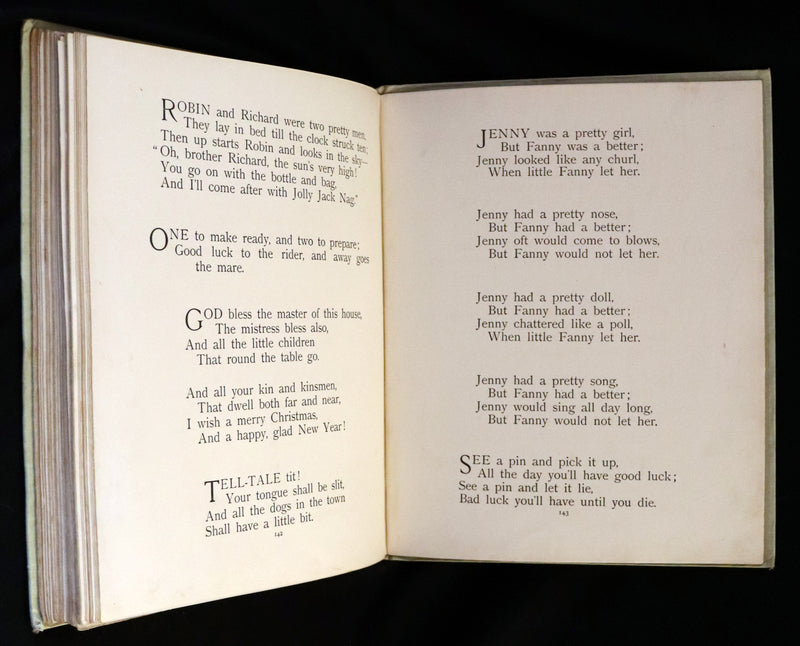 ROBIN and Richard were two pretty men,
They lay in bed till the clock struck ten;
Then up starts Robin and looks in the sky—
"Oh, brother Richard, the sun's very high!
You go on with the bottle and bag,
And I'll come after with Jolly Jack Nag."
ONE to make ready, and two to prepare;
Good luck to the rider, and away goes
the mare.
GOD bless the master of this house,
The mistress bless also,
And all the little children
That round the table go.
And all your kin and kinsmen,
That dwell both far and near,
I wish a merry Christmas,
And a happy, glad New Year!
TELL-TALE tit!
Your tongue shall be slit,
And all the dogs in the town
Shall have a little bit.
142
JENNY was a pretty girl,
But Fanny was a better;
Jenny looked like any churl,
When little Fanny let her.
Jenny had a pretty nose,
But Fanny had a better;
Jenny oft would come to blows,
But Fanny would not let her.
Jenny had a pretty doll,
But Fanny had a better;
Jenny chattered like a poll,
When little Fanny let her.
Jenny had a pretty song,
But Fanny had a better;
Jenny would sing all day long,
But Fanny would not let her.
SEE a pin and pick it up,
All the day you'll have good luck;
See a pin and let it lie,
Bad luck you'll have until you die.
143